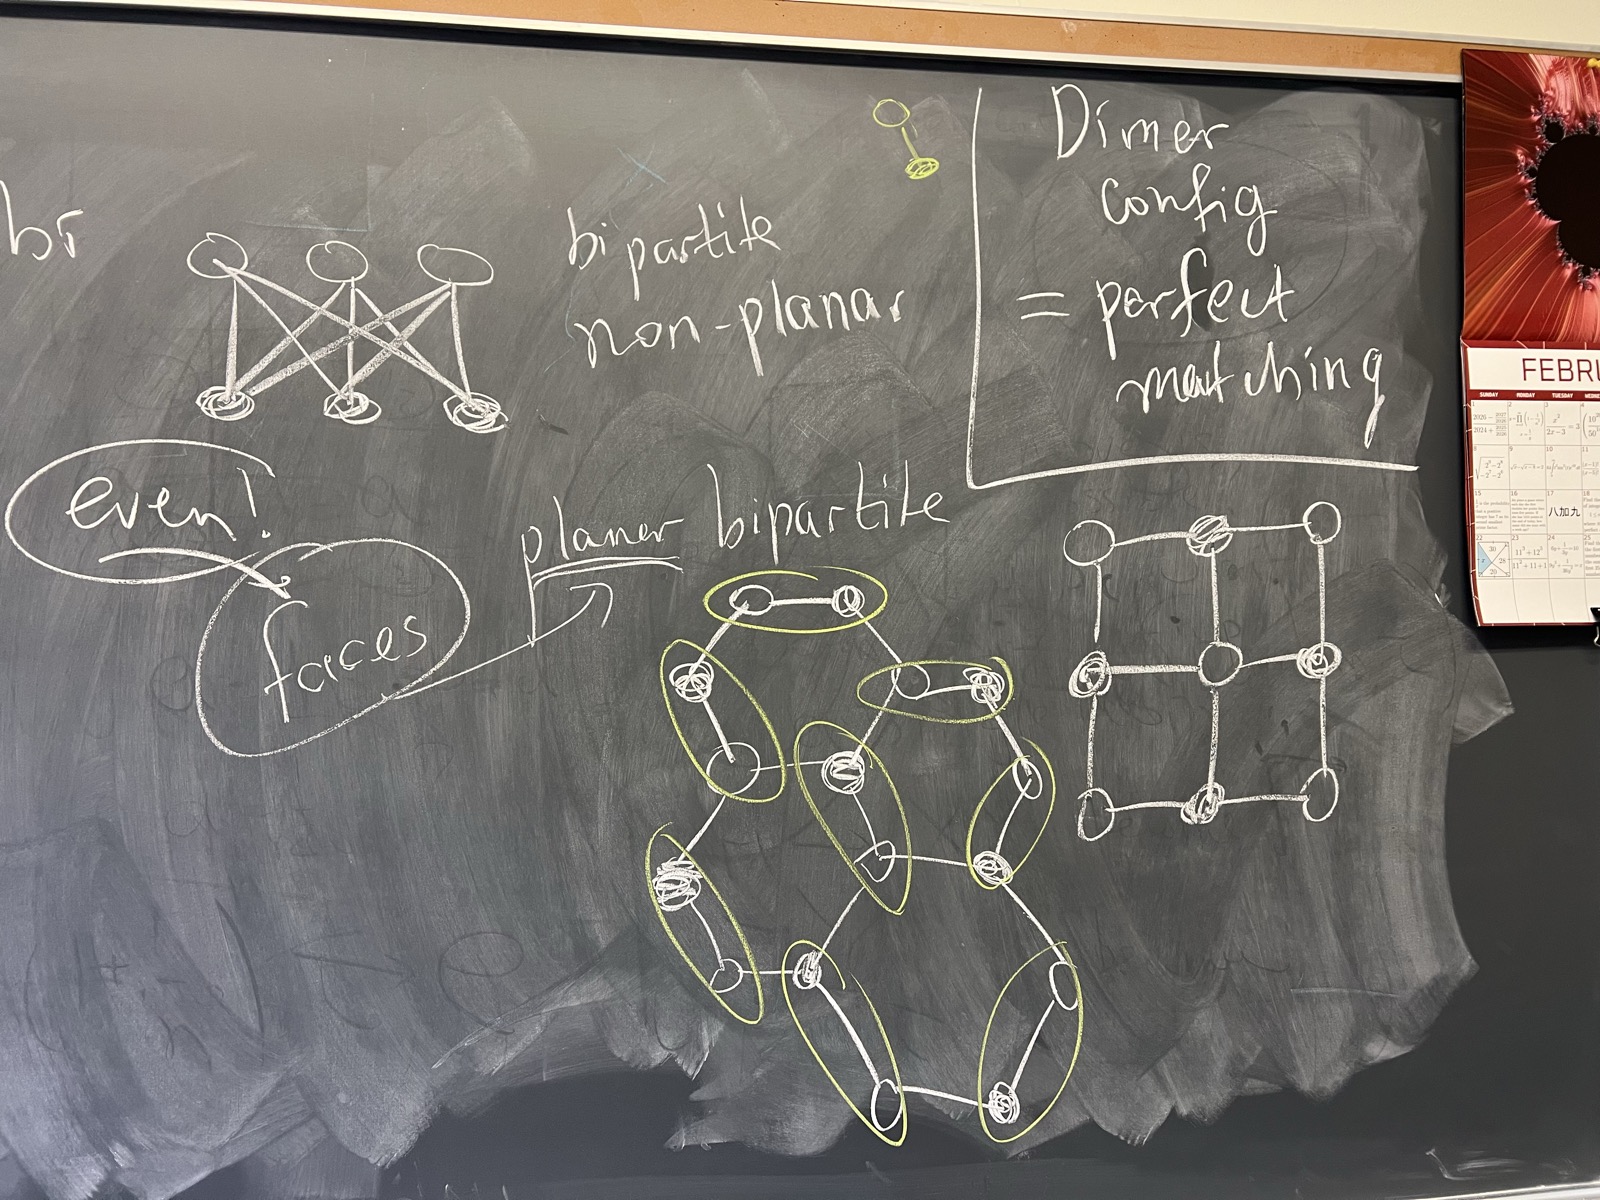 bipartite
non-planar
Dimer
config
= perfect
matching
even!
faces
planar bipartite
FEBRU
SUNDAY MONDAY TUESDAY
八加九